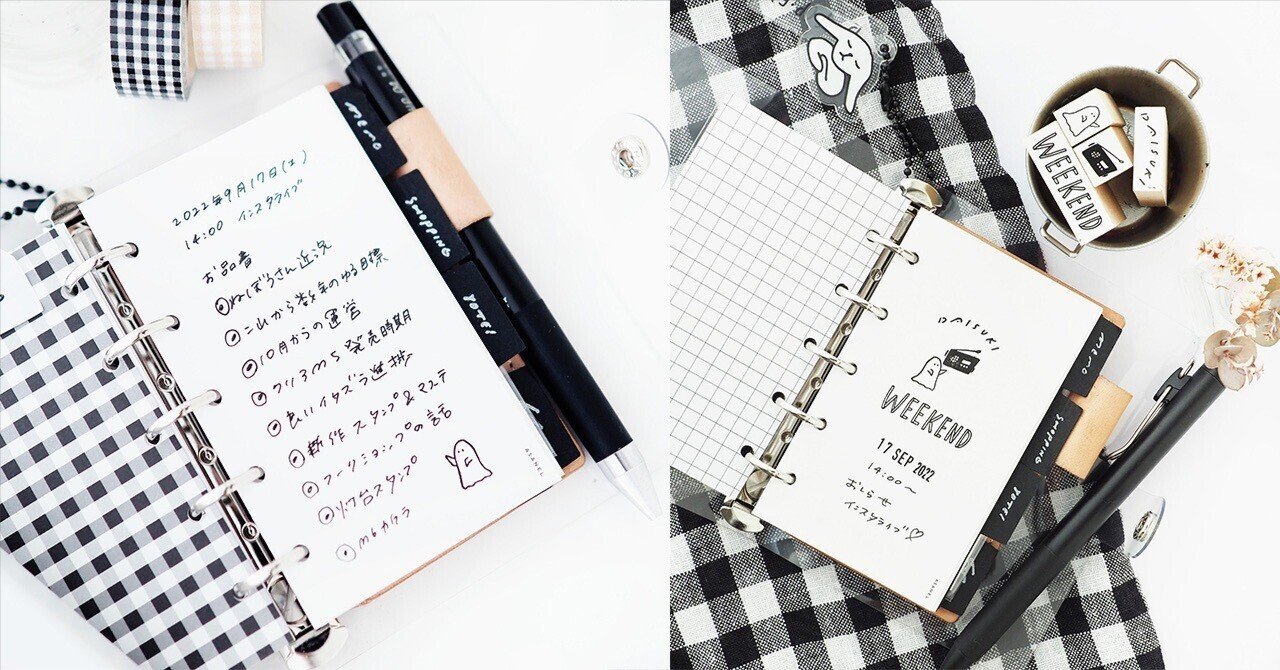 2022年9月17日(土)
14:00 インスタライブ
お品書
ねぼうさん近況
これから数年のゆる目標
10月からの運営
フリ3m5発売時期
良いイタズラ進捗
新作スタンプ&マステ
ワークショップの話
ソフ台スタンプ
m6カケラ
ASANEL
memo
SHOPPING
YOTEI
DAISUKI
WEEKEND
17 SEP 2022
14:00〜
おしらせ
インスタライブ♡
ASANEL
memo
SHOPPING
YOTEI
WEEKEND
DAISUKI